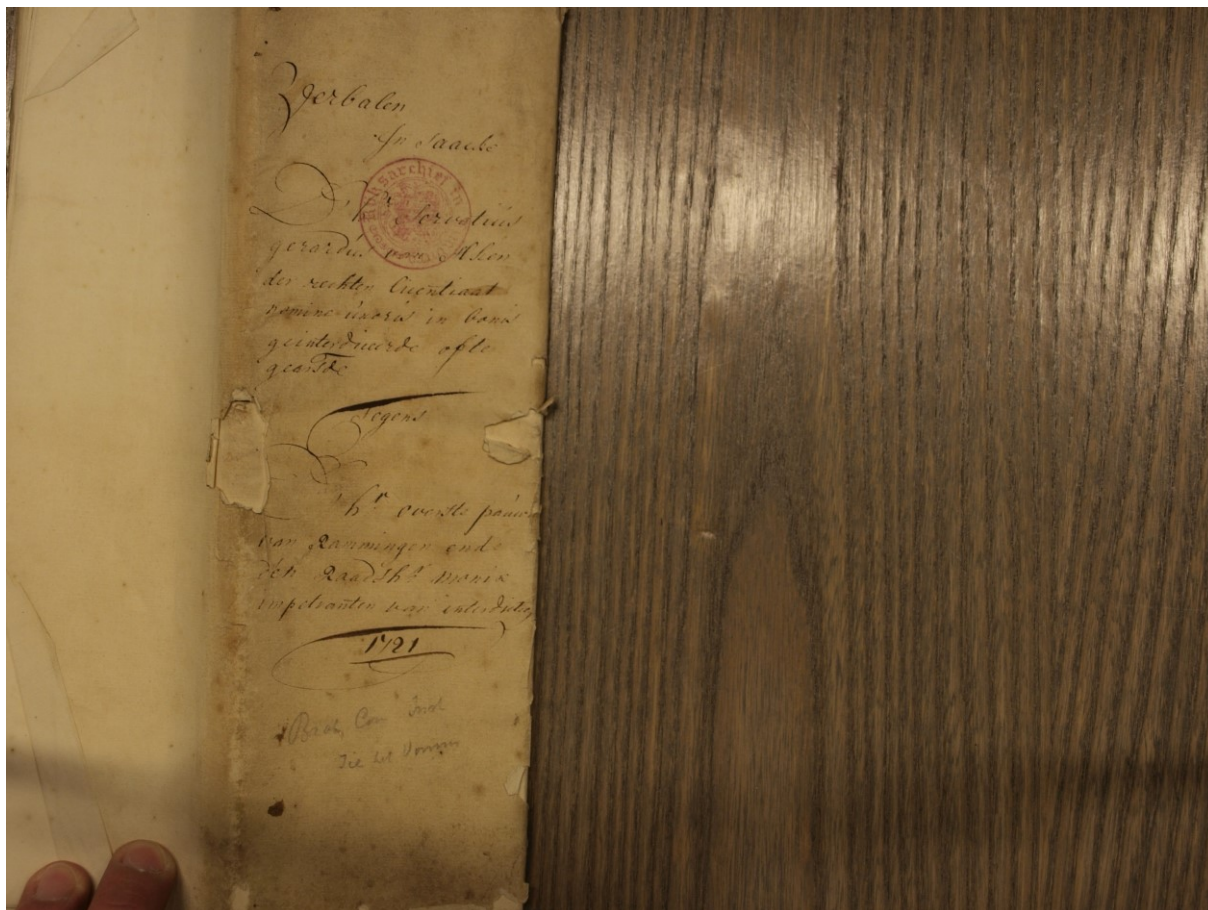 Verbalen
In saacke
D'hr Servatius
gerardus van Alken
der rechten licentiaat
nomine uxoris in bonis
geinterdiceerde ofte
gearrde
Tegens
d'hr overste pauw
van Rammingen ende
den Raadshr monix
impetranten van interdictie
1721
Brab,
Zie het Vonnis